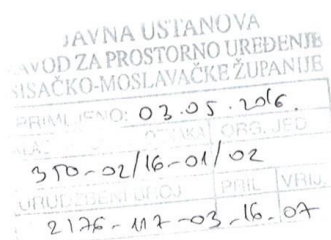 JAVNA USTANOVA
ZAVOD ZA PROSTORNO UREĐENJE
SISAČKO-MOSLAVAČKE ŽUPANIJE
PRIMLJENO: 03.05.2016.
OZNAKA ORG. JED.
350-02/16-01/02
URUDŽBENI BROJ PRIL. VRIJ.
2176-117-03-16-07